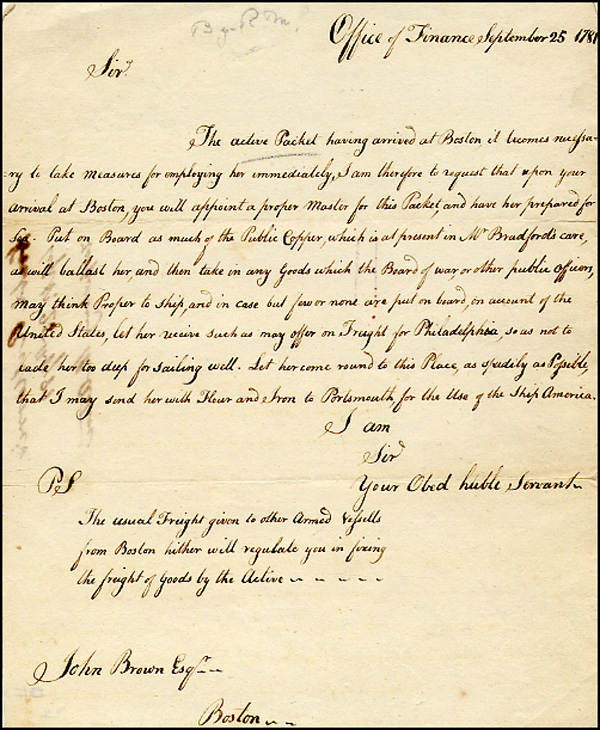 By R M.
Office of Finance September 25 1781
Sir,
The active Packet having arrived at Boston it becomes necessa-
-ry to take measures for employing her immediately, I am therefore to request that upon your
arrival at Boston, you will appoint a proper Master for this Packet and have her prepared for
Sea. Put on Board as much of the Public Copper, which is at present in Mr Bradford's care,
as will ballast her, and then take in any Goods which the Board of war or other public officers,
may think Proper to ship, and in case but few or none are put on board, on account of the
United States, let her receive such as may offer on Freight for Philadelphia, so as not to
lade her too deep for sailing well. Let her come round to this Place, as speedily as Possible,
that I may send her with Flour and Iron to Portsmouth, for the Use of the Ship America.
I am
Sir
Your Obed huble Servant
PS
The usual Freight given to other Armed Vessells
from Boston hither will regulate you in fixing
the freight of Goods by the Active
John Brown Esqr
Boston